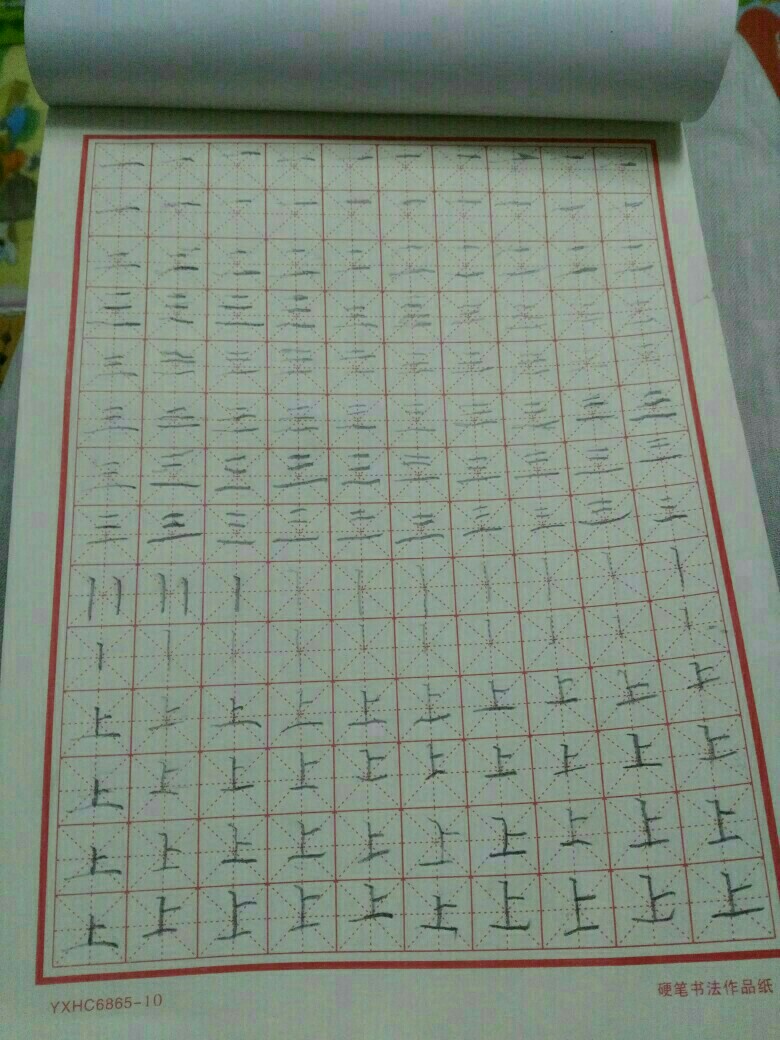 一 一 一 一 一 一 一 一 一 一
一 一 一 一 一 一 一 一 一 一
二 二 二 二 二 二 二 二 二 二
三 三 三 三 三 三 三 三 三 三
三 三 三 三 三 三 三 三 三 三
三 三 三 三 三 三 三 三 三 三
三 三 三 三 三 三 三 三 三 三
三 三 三 三 三 三 三 三 三 三
丨丨 丨丨 丨 丨 丨 丨 丨 丨 丨 丨
丨 丨 丨 丨 丨 丨 丨 丨 丨 丨
上 上 上 上 上 上 上 上 上 上
上 上 上 上 上 上 上 上 上 上
上 上 上 上 上 上 上 上 上 上
上 上 上 上 上 上 上 上 上 上
YXHC6865-10 硬笔书法作品纸